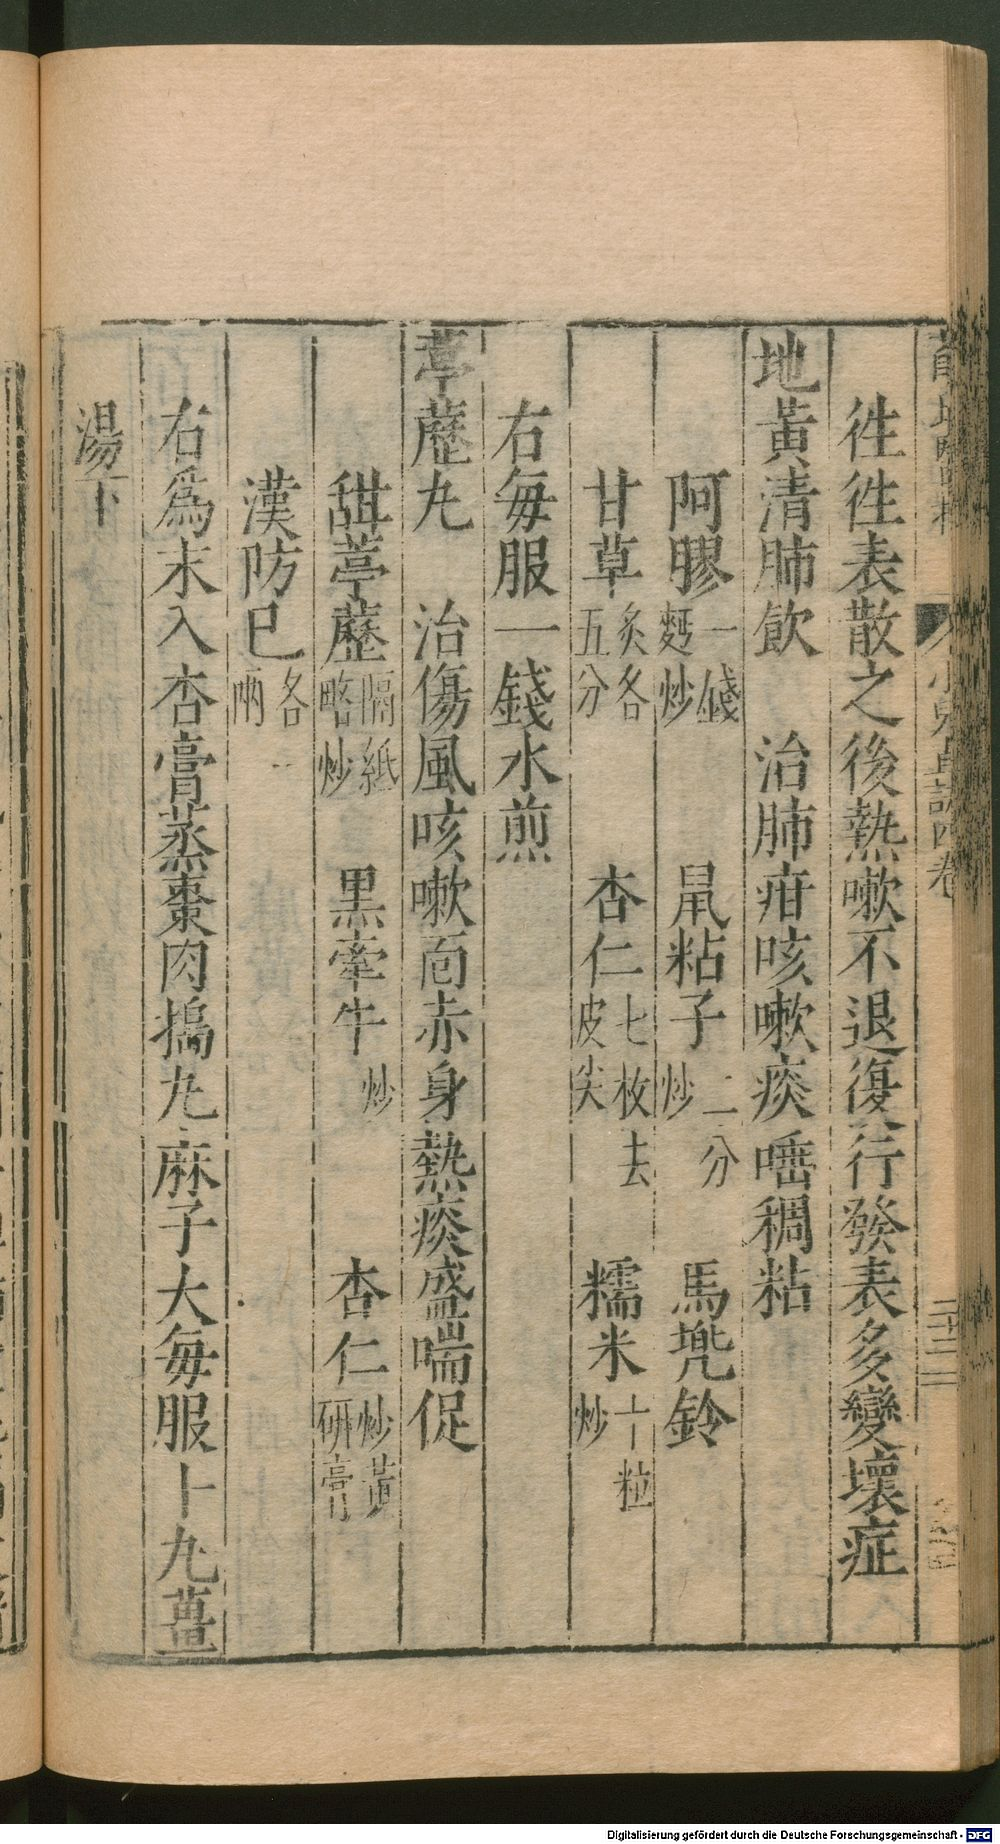 徃徃表散之後熱嗽不退復行發表多變壞症
地黃清肺飲　治肺疳咳嗽痰唾稠粘
阿膠一錢麪炒　鼠粘子二分炒　馬兠鈴
甘草炙各五分　杏仁七枚去皮尖　糯米十粒炒
右每服一錢水煎
葶藶丸　治傷風咳嗽面赤身熱痰盛喘促
甜葶藶隔紙略炒　黒牽牛炒　杏仁炒黃研膏
漢防已各一兩
右爲末入杏膏蒸棗肉搗丸麻子大每服十丸薑
湯下
小兒直訣四卷
二十二
Digitalisierung gefördert durch die Deutsche Forschungsgemeinschaft - DFG